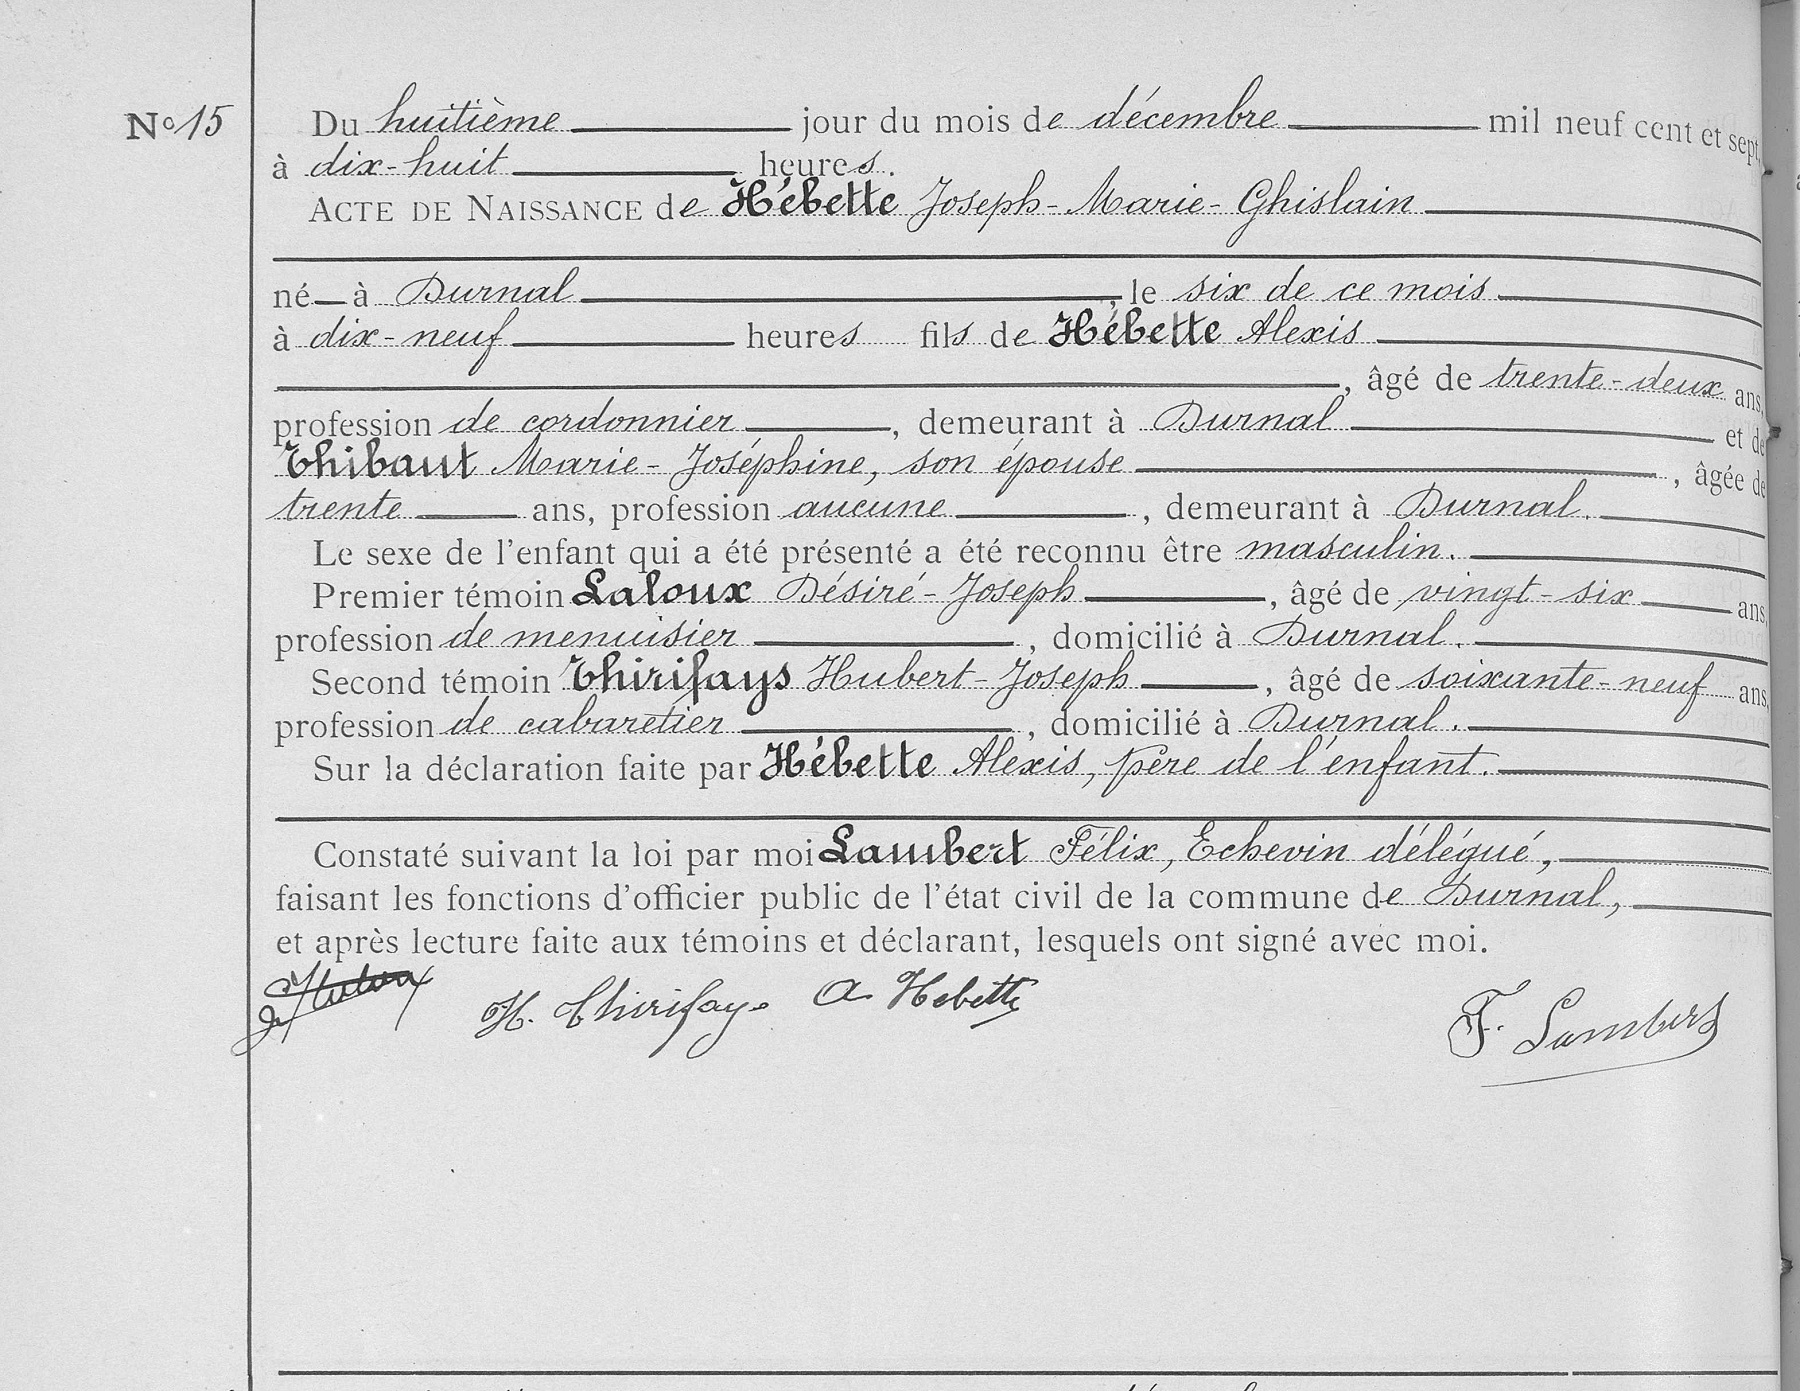 No 15
Du huitième jour du mois de décembre mil neuf cent et sept,
à dix-huit heures.
ACTE DE NAISSANCE de Hébette Joseph-Marie-Ghislain
né à Durnal, le six de ce mois
à dix-neuf heures fils de Hébette Alexis
, âgé de trente-deux ans,
profession de cordonnier, demeurant à Durnal et de
Thibaut Marie-Joséphine, son épouse, âgée de
trente ans, profession aucune, demeurant à Durnal.
Le sexe de l'enfant qui a été présenté a été reconnu être masculin.
Premier témoin Laloux Désiré-Joseph, âgé de vingt-six ans,
profession de menuisier, domicilié à Durnal.
Second témoin Thirifays Hubert-Joseph, âgé de soixante-neuf ans,
profession de cabaretier, domicilié à Durnal.
Sur la déclaration faite par Hébette Alexis, père de l'enfant.
Constaté suivant la loi par moi Lambert Félix, Echevin délégué,
faisant les fonctions d'officier public de l'état civil de la commune de Durnal,
et après lecture faite aux témoins et déclarant, lesquels ont signé avec moi.
H. Thirifays A Hebette F. Lambert